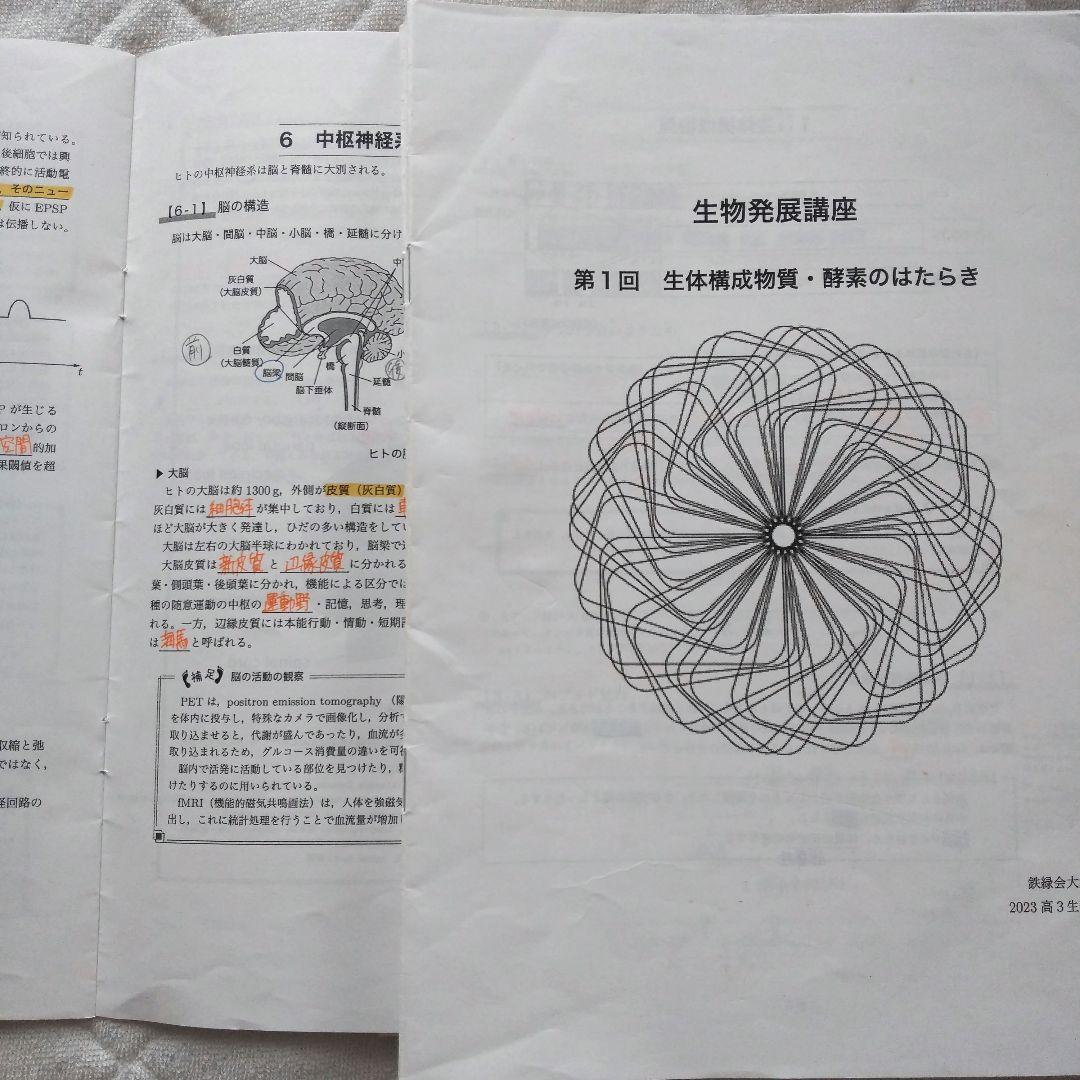 知られている。
後細胞では興
終的に活動電
、そのニュー
仮に EPSP
は伝播しない。
t
P が生じる
ロンからの
空間的加
果閾値を超
収縮と弛
ではなく，
経回路の
6 中枢神経系
ヒトの中枢神経系は脳と脊髄に大別される。
【6-1】 脳の構造
脳は大脳・間脳・中脳・小脳・橋・延髄に分け
大脳
中
灰白質
(大脳皮質)
前
白質
(大脳髄質)
脳梁
間脳
橋
小
後
脳下垂体
延髄
脊髄
(縦断面)
ヒトの
▶ 大脳
ヒトの大脳は約 1300 g，外側が皮質（灰白質）
灰白質には 細胞体 が集中しており，白質には
ほど大脳が大きく発達し，ひだの多い構造をしてい
大脳は左右の大脳半球にわかれており，脳梁で
大脳皮質は 新皮質 と 辺縁皮質 に分かれる
葉・側頭葉・後頭葉に分かれ，機能による区分では
種の随意運動の中枢の 運動野 ・記憶，思考，理
れる。一方，辺縁皮質には本能行動・情動・短期
は 海馬 と呼ばれる。
補足 脳の活動の観察
PET は，positron emission tomography （陽
を体内に投与し，特殊なカメラで画像化し，分析
取り込ませると，代謝が盛んであったり，血流が多
取り込まれるため，グルコース消費量の違いを可
脳内で活発に活動している部位を見つけたり，
けたりするのに用いられている。
fMRI（機能的磁気共鳴画法）は，人体を強磁気
出し，これに統計処理を行うことで血流量が増加
生物発展講座
第1回 生体構成物質・酵素のはたらき
鉄緑会大
2023 高3生